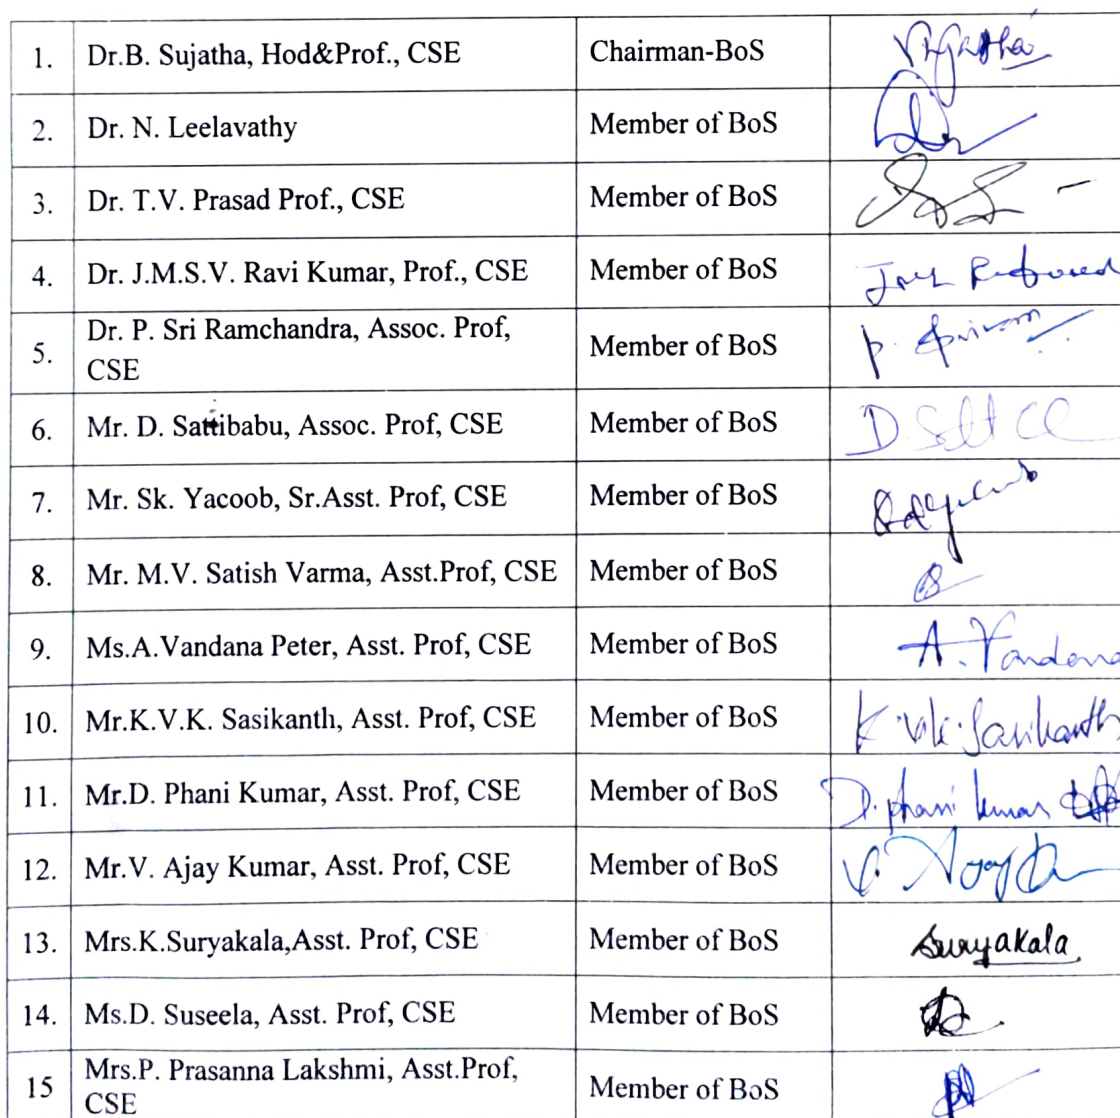 1. Dr.B. Sujatha, Hod&Prof., CSE Chairman-BoS
2. Dr. N. Leelavathy Member of BoS
3. Dr. T.V. Prasad Prof., CSE Member of BoS
4. Dr. J.M.S.V. Ravi Kumar, Prof., CSE Member of BoS
5. Dr. P. Sri Ramchandra, Assoc. Prof, Member of BoS P. Sriram
CSE
6. Mr. D. Sattibabu, Assoc. Prof, CSE Member of BoS
7. Mr. Sk. Yacoob, Sr.Asst. Prof, CSE Member of BoS
8. Mr. M.V. Satish Varma, Asst.Prof, CSE Member of BoS
9. Ms.A.Vandana Peter, Asst. Prof, CSE Member of BoS A. Vandana
10. Mr.K.V.K. Sasikanth, Asst. Prof, CSE Member of BoS K.V.K. Sasikanth
11. Mr.D. Phani Kumar, Asst. Prof, CSE Member of BoS D. phani kumar
12. Mr.V. Ajay Kumar, Asst. Prof, CSE Member of BoS
13. Mrs.K.Suryakala,Asst. Prof, CSE Member of BoS Suryakala
14. Ms.D. Suseela, Asst. Prof, CSE Member of BoS
15 Mrs.P. Prasanna Lakshmi, Asst.Prof, Member of BoS
CSE